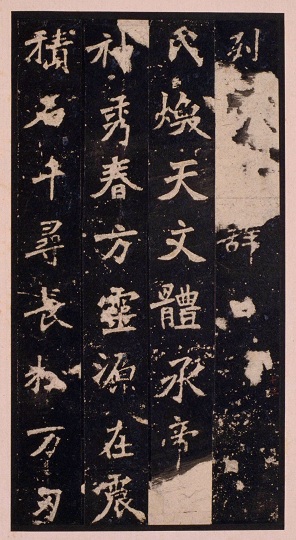 列辞曰
氏煥天文體承帝
神秀春方靈源在震
積石千尋長松万刃